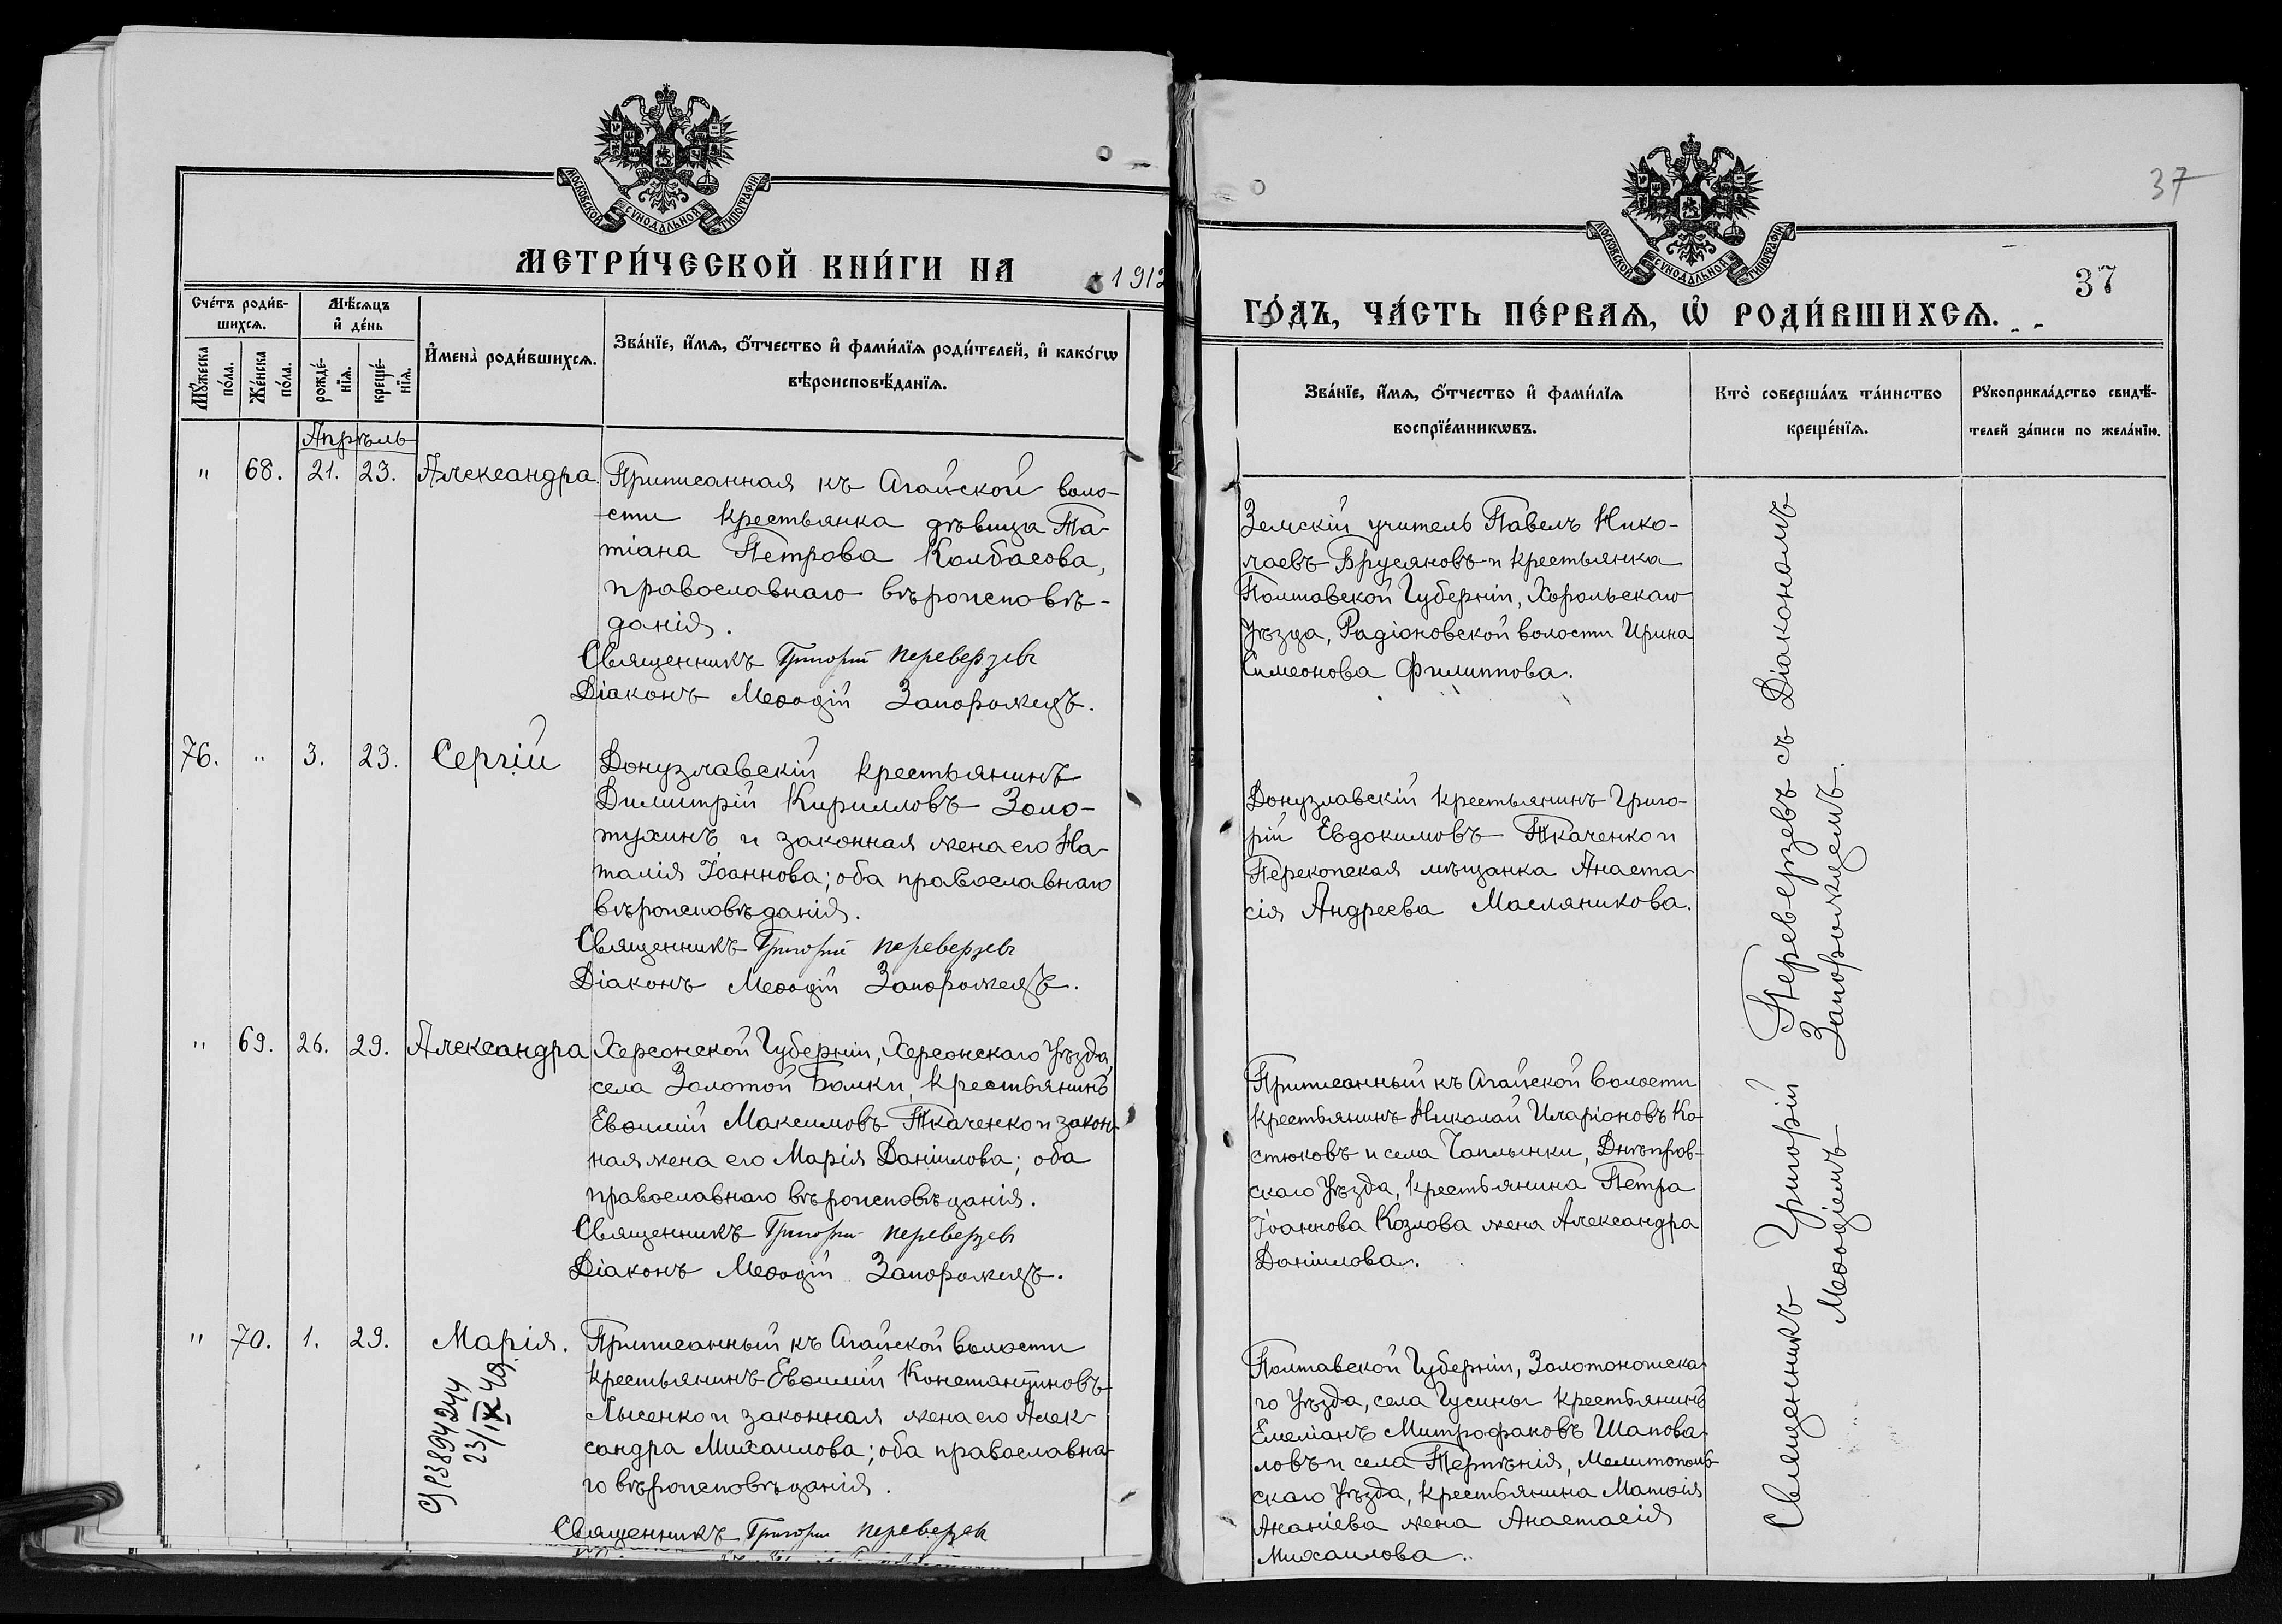 МОСКОВСКОЙ СѴНОДАЛЬНОЙ ТИПОГРАФІИ
МЕТРИ́ЧЕСКОЙ КНИ́ГИ НА 1912
Сче́тъ роди́в-
шихсѧ.
Мѣ́сѧцъ
и҆ де́нь
Мꙋ́жеска
по́ла.
Же́нска
по́ла.
рожде́-
нїѧ.
креще́-
нїѧ.
И҆мена̀ роди́вшихсѧ.
Зва́нїе, и҆́мѧ, ѻ҆́тчество и҆ фами́лїѧ роди́телей, и҆ како́гѡ
вѣроисповѣ́данїѧ.
Апрѣль
" 68. 21. 23. Александра.
Приписанная къ Агайской воло-
сти крестьянка дѣвица Та-
тіана Петрова Колбасова,
православнаго вѣроисповѣ-
данія.
Священникъ Григорій Переверзевъ
Діаконъ Меѳодій Запорожецъ.
76. " 3. 23. Сергій
Донузлавскій крестьянинъ
Димитрій Кирилловъ Золо-
тухинъ и законная жена его На-
талія Іоаннова; оба православнаго
вѣроисповѣданія.
Священникъ Григорій Переверзевъ
Діаконъ Меѳодій Запорожецъ.
" 69. 26. 29. Александра
Херсонской Губерніи, Херсонскаго Уѣзда,
села Золотой Балки, крестьянинъ
Евѳимій Максимовъ Ткаченко и закон-
ная жена его Марія Даніилова; оба
православнаго вѣроисповѣданія.
Священникъ Григорій Переверзевъ
Діаконъ Меѳодій Запорожецъ.
" 70. 1. 29. Марія.
Приписанный къ Агайской волости
крестьянинъ Евѳимій Константиновъ
Лысенко и законная жена его Алек-
сандра Михаилова; оба православна-
го вѣроисповѣданія.
Священникъ Григорій Переверзевъ
23/IX 49
37
МОСКОВСКОЙ СѴНОДАЛЬНОЙ ТИПОГРАФІИ
37
ГО́ДЪ, ЧА́СТЬ ПЕ́РВАѦ, Ѡ҆ РОДИ́ВШИХСѦ.
Зва́нїе, и҆́мѧ, ѻ҆́тчество и҆ фами́лїѧ
воспрїе́мникѡвъ.
Кто̀ соверша́лъ та́инство
креще́нїѧ.
Рꙋкоприкла́дство свидѣ́-
телей за́писи по жела́нїю.
Земскій учитель Павелъ Нико-
лаевъ Брусяновъ и крестьянка
Полтавской Губерніи, Хорольскаго
Уѣзда, Радіоновской волости Ирина
Симеонова Филиппова.
Донузлавскій крестьянинъ Григо-
рій Евдокимовъ Ткаченко и
Перекопская мѣщанка Анаста-
сія Андреева Масляникова.
Приписанный къ Агайской волости
крестьянинъ Николай Иларіоновъ Ко-
стюковъ и села Чаплынки, Днѣпров-
скаго Уѣзда, крестьянина Петра
Іоаннова Козлова жена Александра
Даніилова.
Полтавской Губерніи, Золотоношска-
го Уѣзда, села Гусины крестьянинъ
Емеліанъ Митрофановъ Шапова-
ловъ и села Терпѣнія, Мелитополь-
скаго Уѣзда, крестьянина Матѳія
Ананіева жена Анастасія
Михаилова.
Священникъ Григорій Переверзевъ съ Діакономъ
Меѳодіемъ Запорожцемъ.